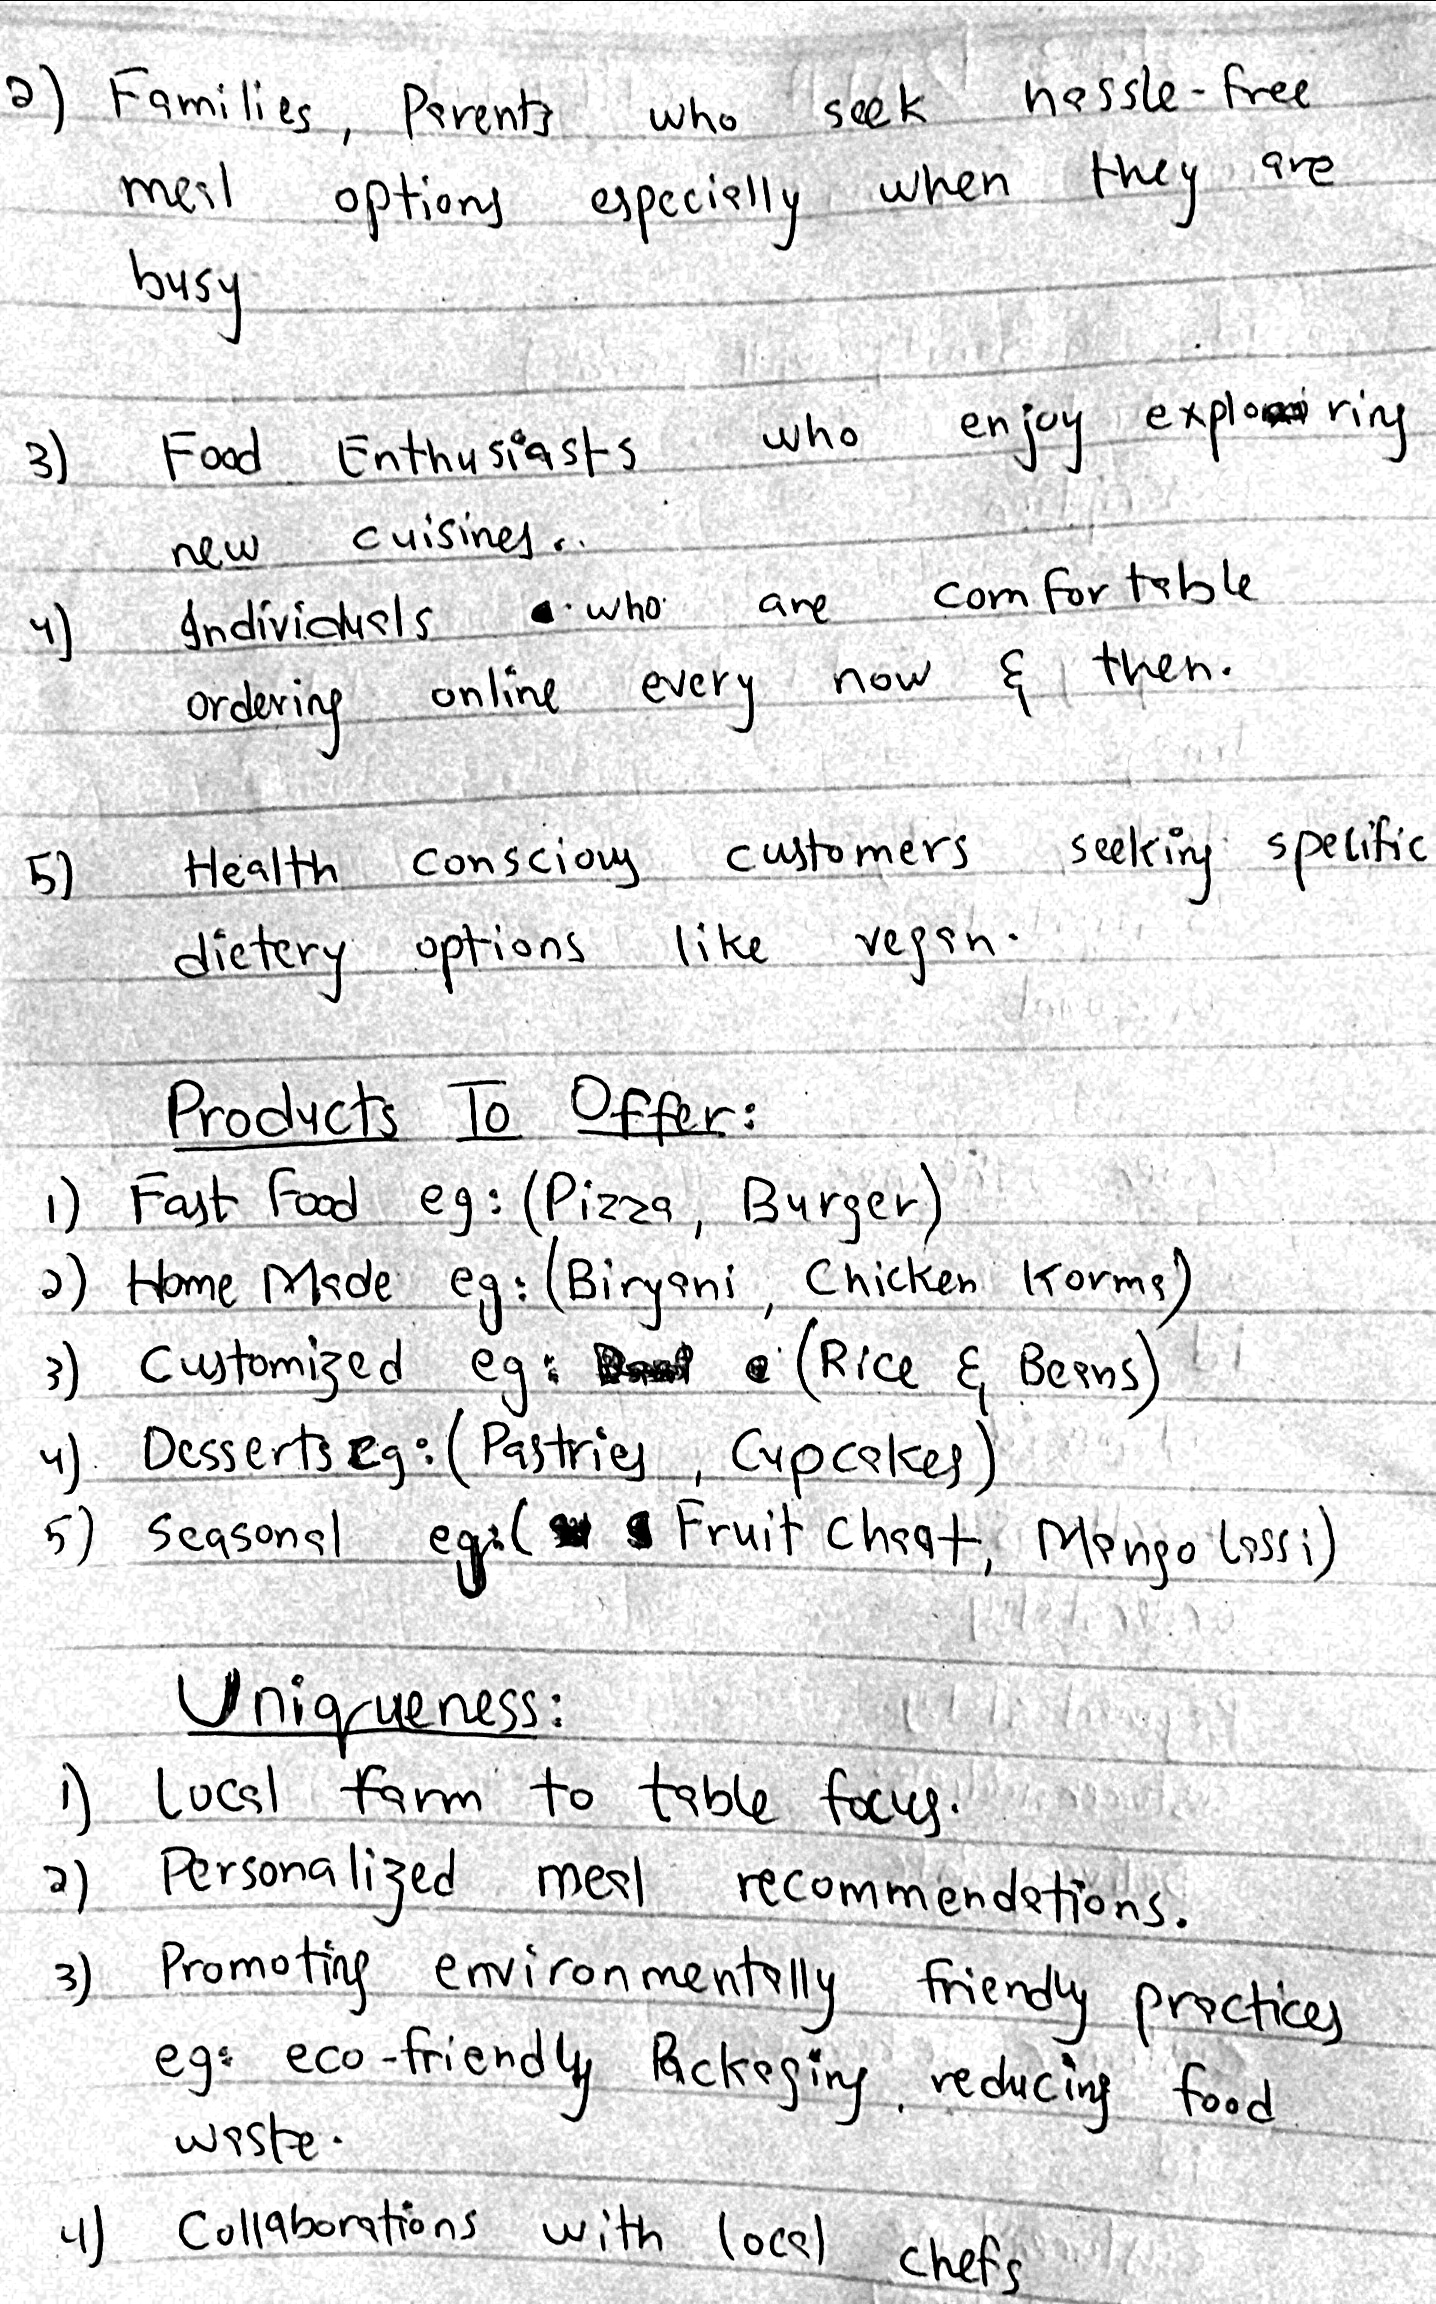 2) Families, Parents who seek hassle-free
meal options especially when they are
busy
3) Food Enthusiasts who enjoy exploring
new cuisines..
4) Individuals who are comfortable
ordering online every now & then.
5) Health conscious customers seeking specific
dietery options like vegan.
Products To Offer:
1) Fast Food eg: (Pizza, Burger)
2) Home Made eg: (Biryani, Chicken Korma)
3) Customized eg: (Rice & Beans)
4) Desserts eg: (Pastries, Cupcakes)
5) Seasonal eg: ( Fruit Chaat, Mango lassi)
Uniqueness:
1) Local farm to table focus.
2) Personalized meal recommendations.
3) Promoting environmentally friendly practices
eg: eco-friendly Packaging, reducing food
waste.
4) Collaborations with local chefs